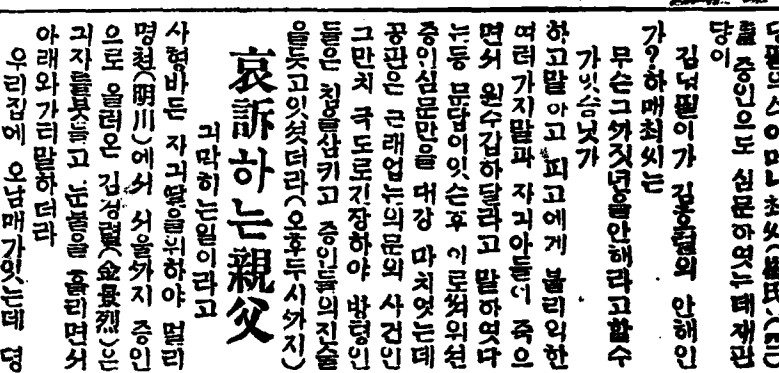 를 증인으로 심문하엿는데재판
당이
가 김홍련의 안해인
가?하매최씨는
무슨그ᄭᅡ짓년을안해라고할수
가잇슴닛가
하고말하고 피고에게 불리익한
여러가지말과 자긔아들이 죽으
면서 원수갑하달라고 말하엿다
는등 문답이잇슨후 이로써위선
증인심문만을 대강 마치엇는데
공판은 근래업는의문의 사건인
그만치 극도로긴장하야 방텽인
들은 침을삼키고 증인들의진술
을듯고잇섯더라(오후두시ᄭᅡ지)
哀訴하는親父
긔막히는일이라고
사형바든 자긔ᄯᅡᆯ을위하야 멀리
명쳔(明川)에서 서울ᄭᅡ지 증인
으로 올러온 김경렬(金景烈)은
긔자를붓들고 눈물을 흘리면서
아래와가티말하더라
우리집에 오남매가잇는데 명